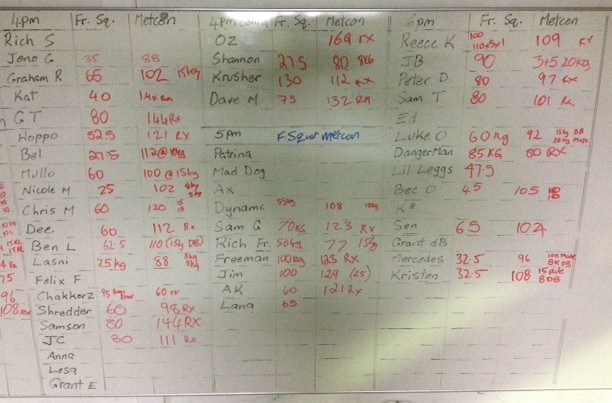 4pm Fr. Sq. Metcon
Rich S
Jono G 35 88
Graham R 65 102 15kg
Kat 40
GT 80 144 Rx
Hoppo 52.5 121 RX
Bel 27.5 112@10kg
Mullo 60 100@15kg
Nicole M 25 102
Chris M 60 120
Dee 60 112 Rx
Ben L 62.5 110 (15kg DB)
Lasni 25kg 88
Felix F
Chakkerz 60
Shredder 60 98 Rx
Samson 80 144 RX
JC 80 111 Rx
Anna
Lesa
Grant E
4pm Fr. Sq. Metcon
Oz 169 rx
Shannon 27.5 80 8KG
Krusher 130 112 rx
Dave M 75 132 Rx
5pm F.Squat Metcon
Patrina
Mad Dog
Ax
Dynamo 55kg 108
Sam G 70KG 123 Rx
Rich Fr. 50kg 77 15kg
Freeman 100kg 123 RX
Jim 100 129 (25)
AK 60 121 Rx
Lana 65
6pm Fr. Sq. Metcon
Reece K 100 109 rx
JB 90 20kg
Peter D 80 97 Rx
Sam T 80 101 Rx
Ed
Luke O 60kg 92 15kg DB
DangerMan 85KG 80 RX
Lil Leggs 47.5
Bec O 45 105
K#
Sen 65 104
Grant dB
Mercedes 32.5 96
Kristen 32.5 108